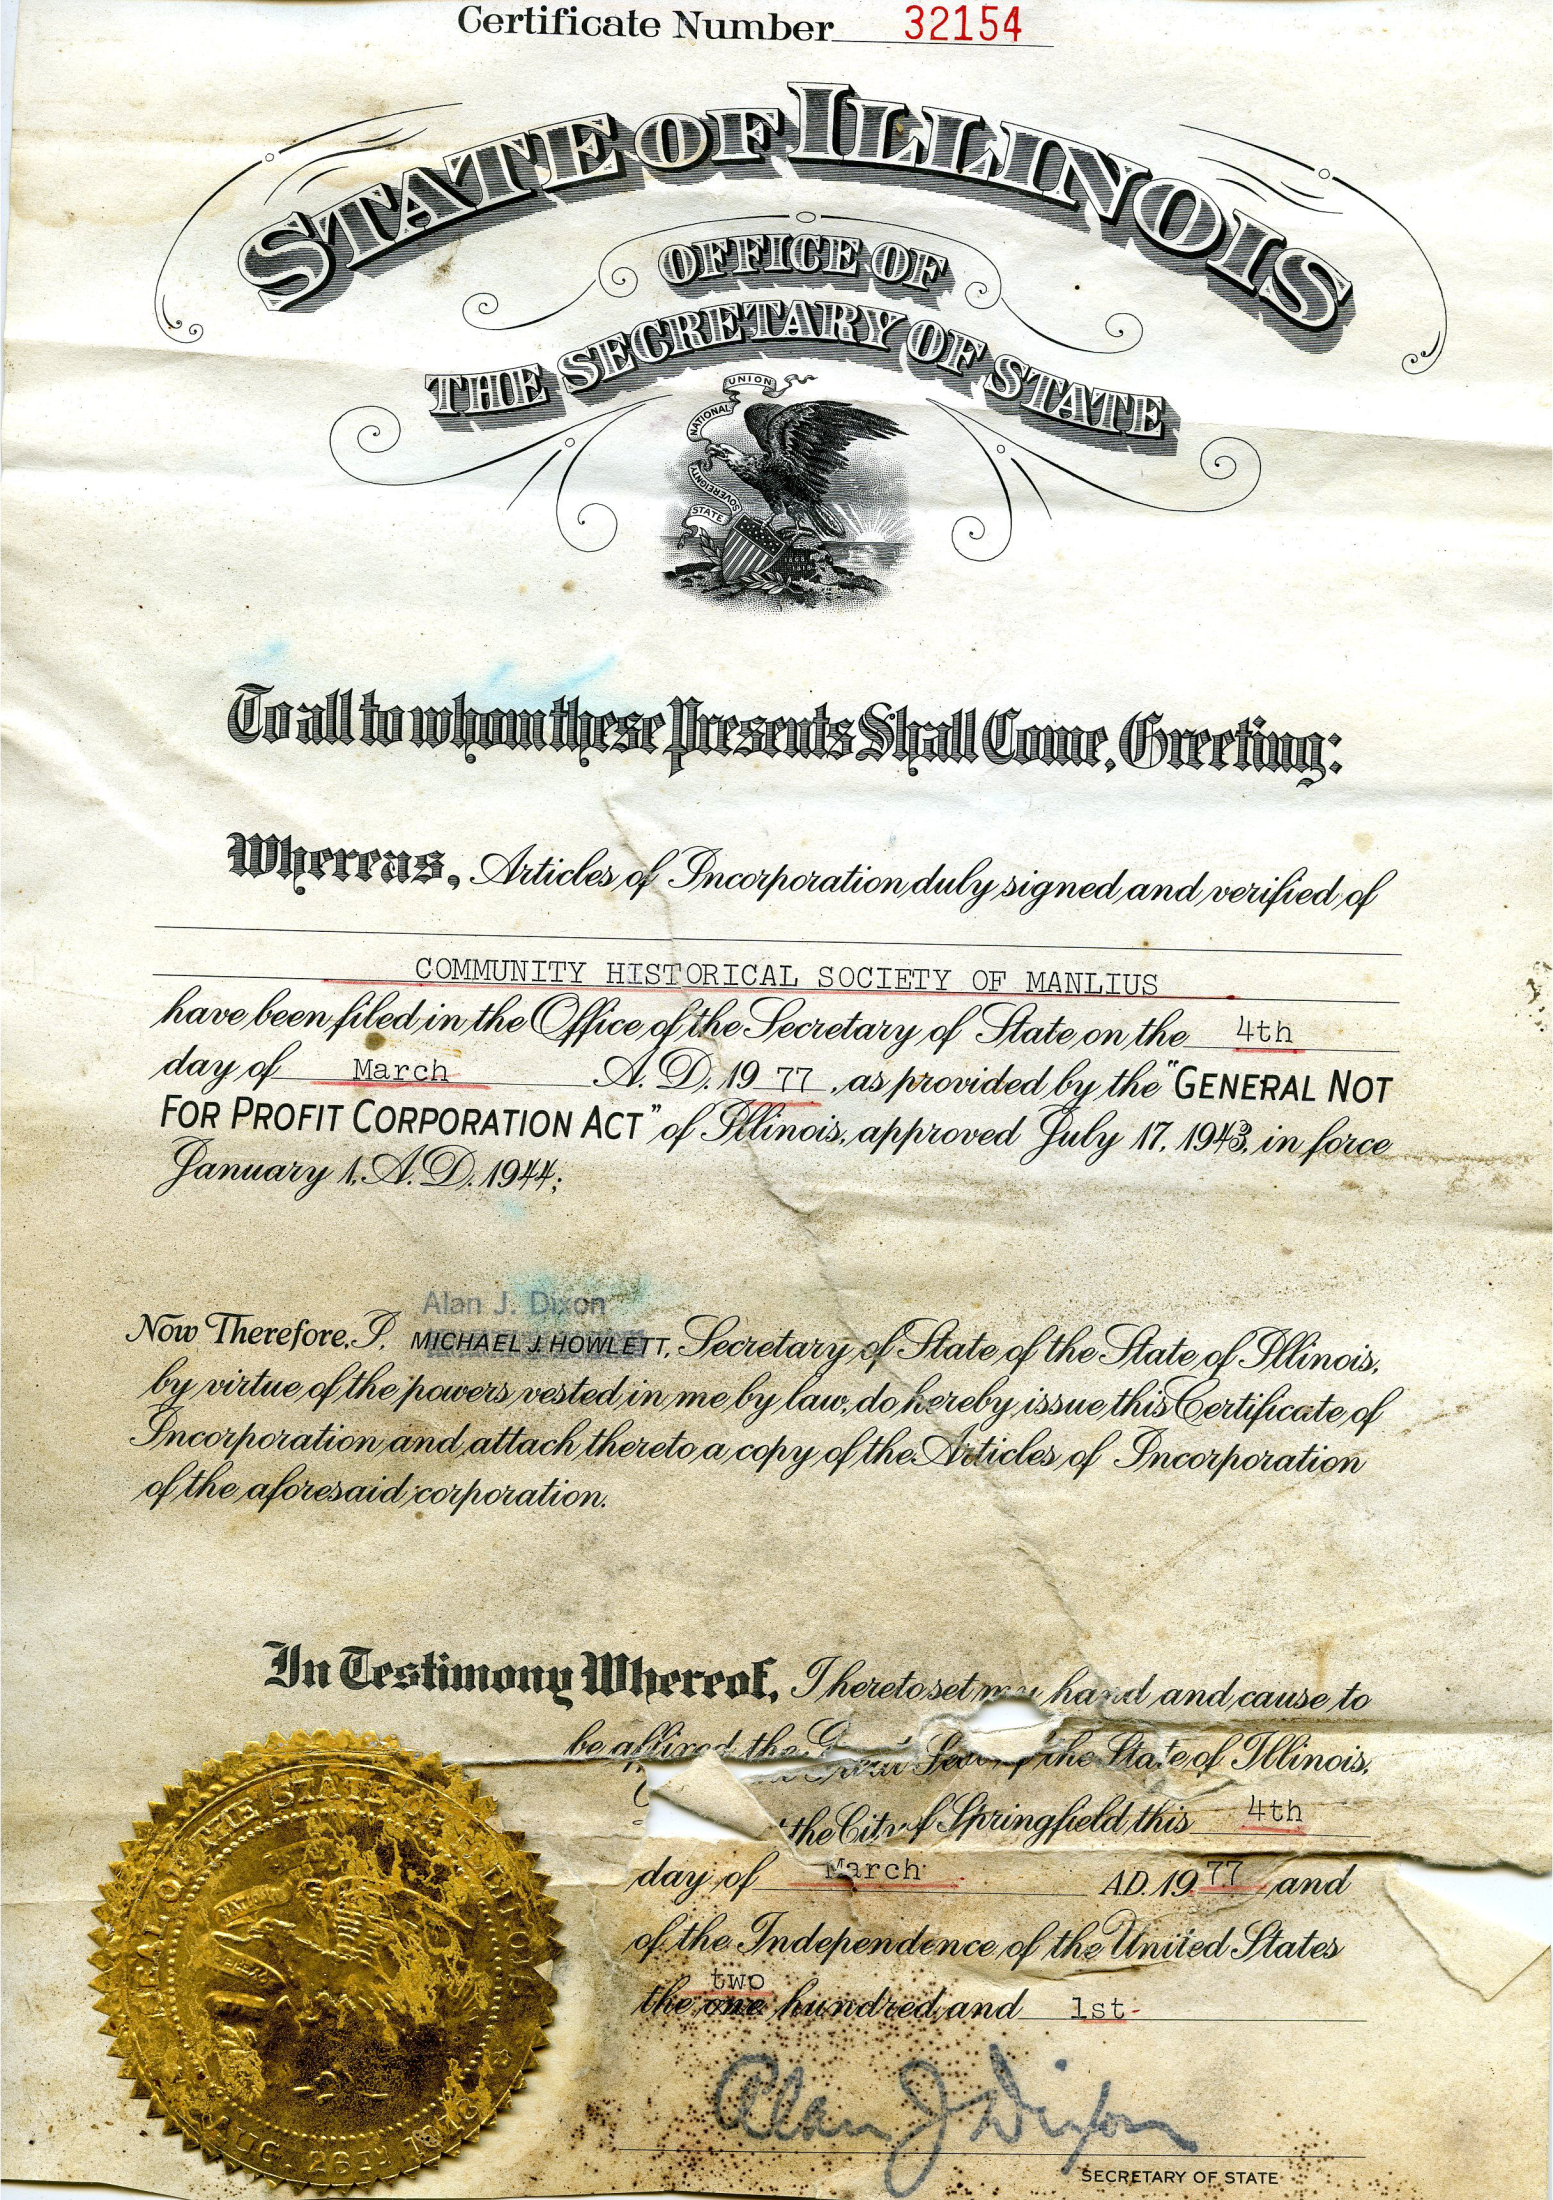 Certificate Number 32154
STATE OF ILLINOIS
OFFICE OF
THE SECRETARY OF STATE
UNION
NATIONAL
SOVEREIGNTY
STATE
To all to whom these Presents Shall Come, Greeting:
Whereas, Articles of Incorporation duly signed and verified of
COMMUNITY HISTORICAL SOCIETY OF MANLIUS
have been filed in the Office of the Secretary of State on the 4th
day of March A. D. 19 77, as provided by the "GENERAL NOT
FOR PROFIT CORPORATION ACT" of Illinois, approved July 17, 1943, in force
January 1, A. D. 1944;
Alan J. Dixon
Now Therefore, I, MICHAEL J. HOWLETT, Secretary of State of the State of Illinois,
by virtue of the powers vested in me by law, do hereby issue this Certificate of
Incorporation and attach thereto a copy of the Articles of Incorporation
of the aforesaid corporation.
In Testimony Whereof, I hereto set my hand and cause to
be affixed the Great Seal of the State of Illinois,
the City of Springfield this 4th
day of March A.D. 19 77 and
of the Independence of the United States
two
the one hundred and 1st
Alan J Dixon
SECRETARY OF STATE
SEAL OF THE STATE OF ILLINOIS
AUG. 26TH 1818